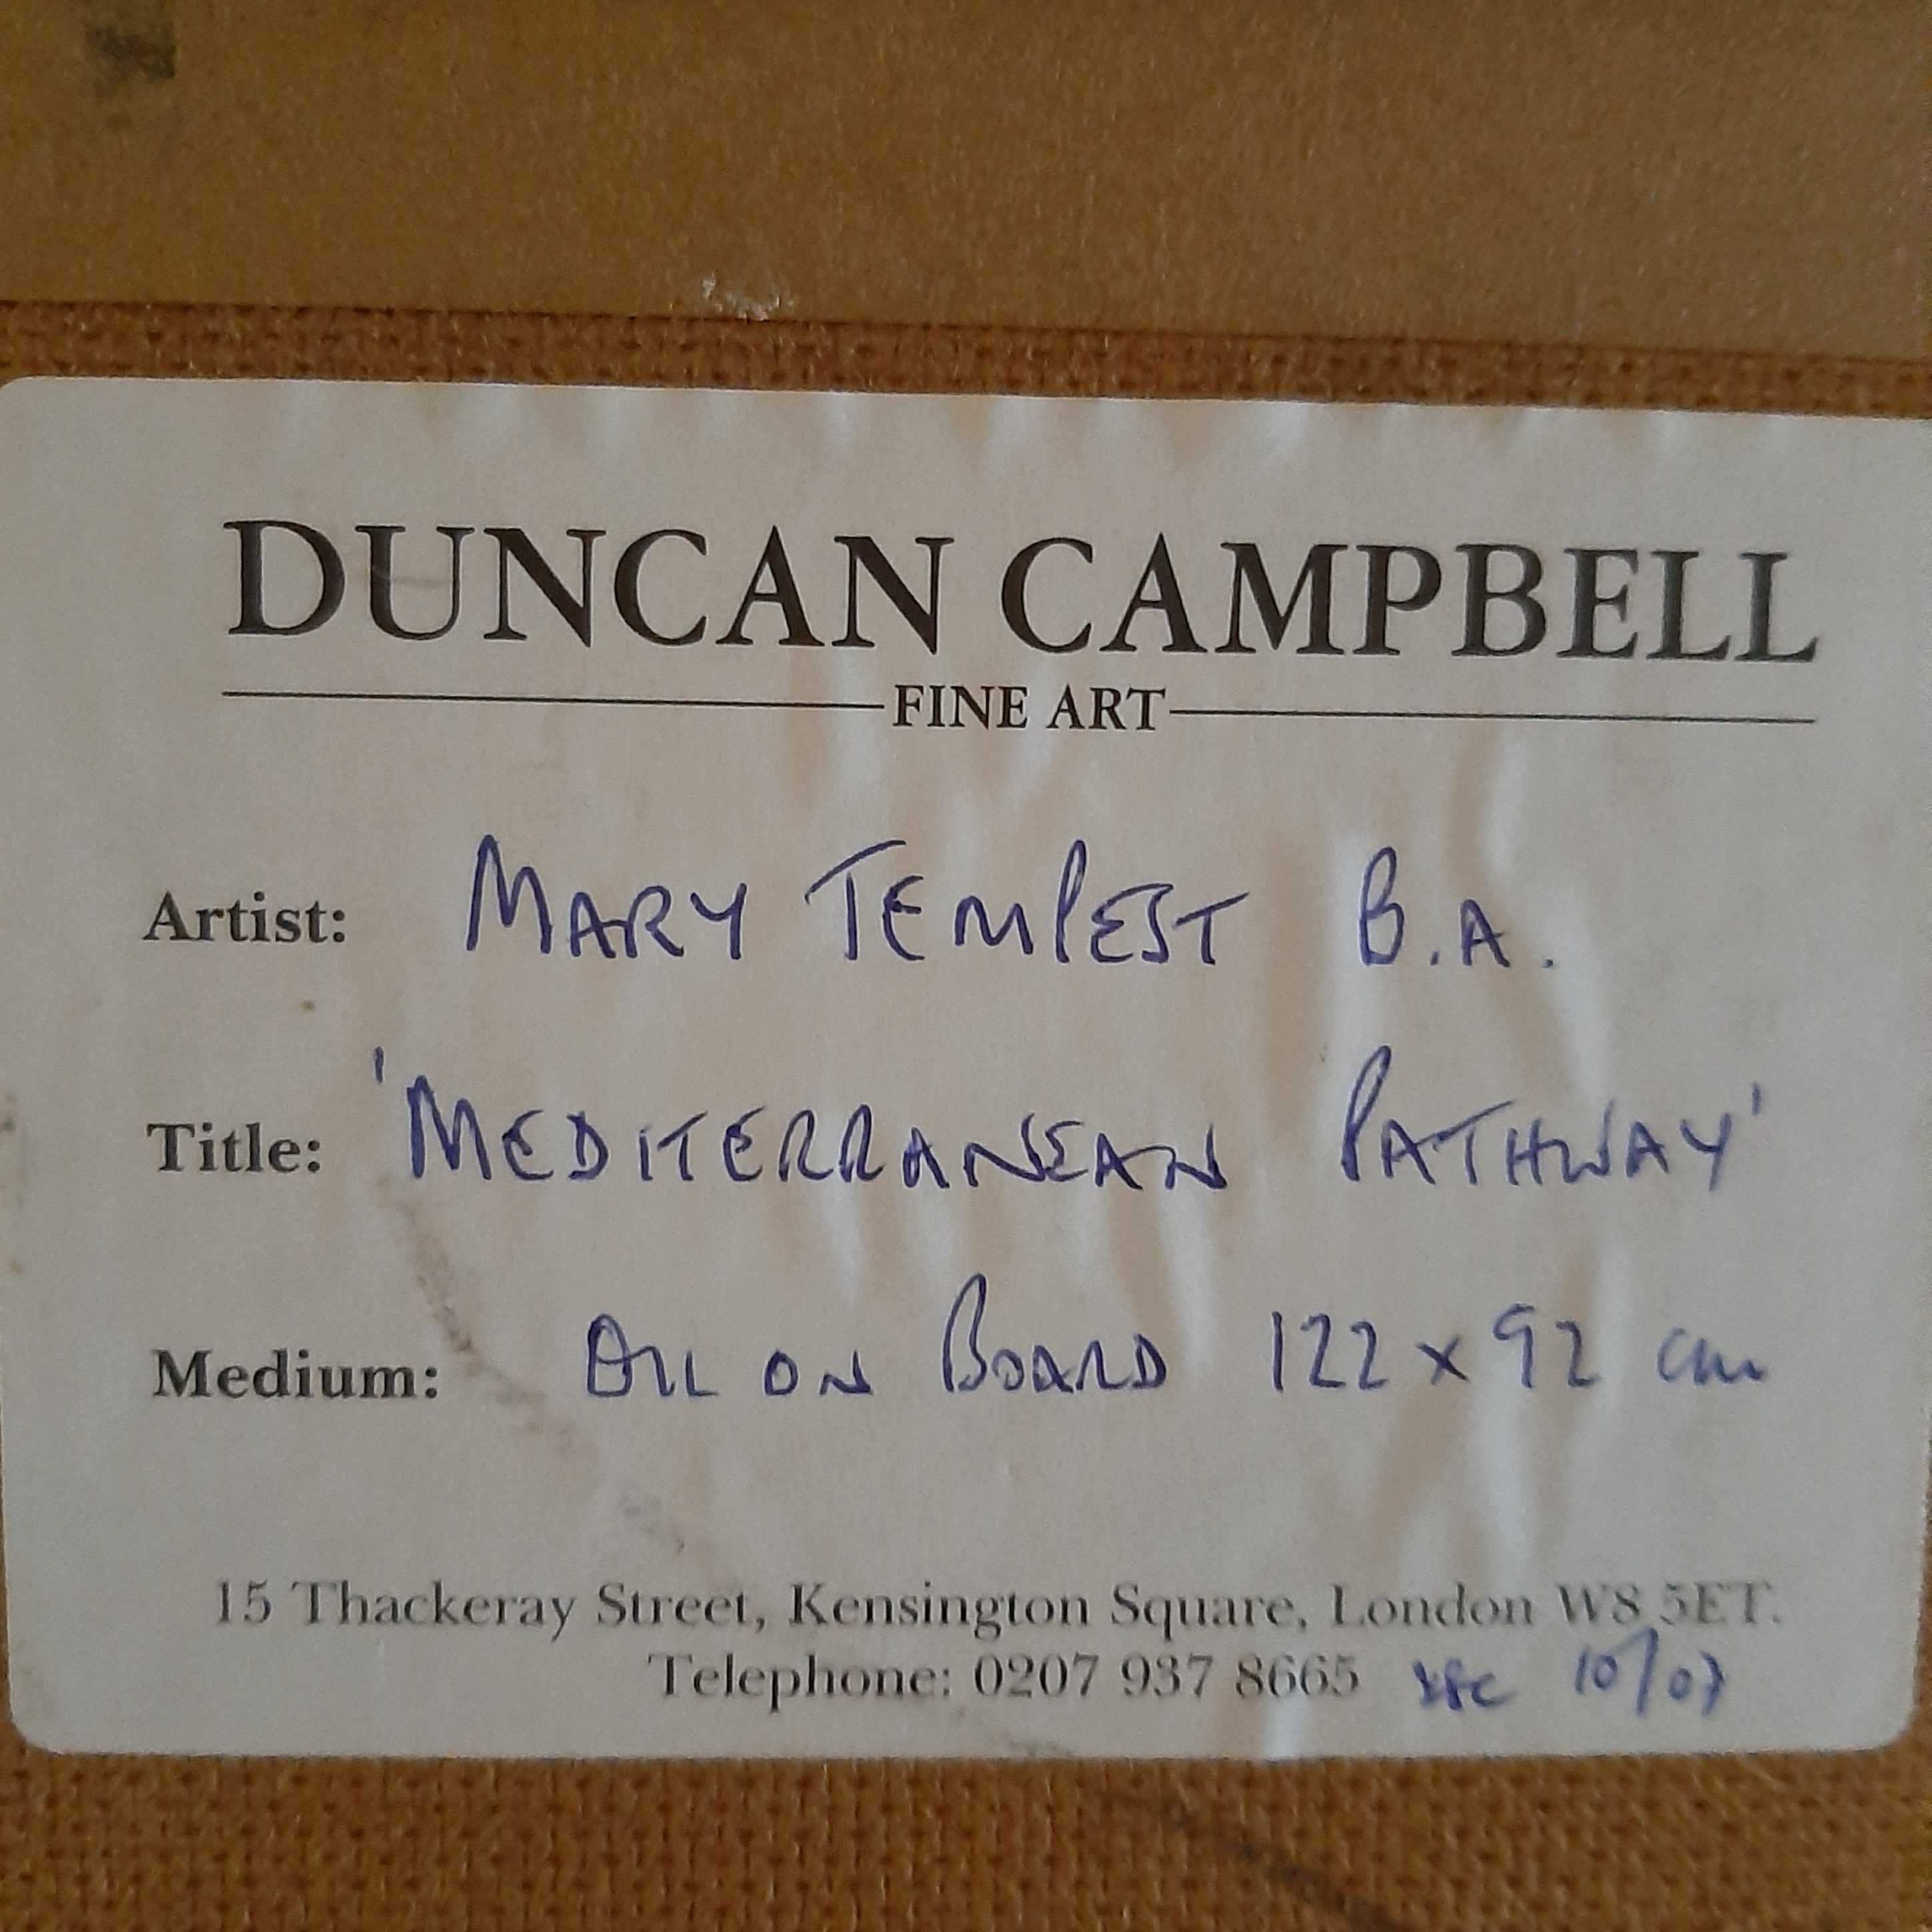 DUNCAN CAMPBELL
FINE ART
Artist: MARY TEMPEST B.A.
Title: 'MEDITERRANEAN PATHWAY'
Medium: OIL ON BOARD 122 x 92 cm
15 Thackeray Street, Kensington Square, London W8 5ET.
Telephone: 0207 937 8665 10/07